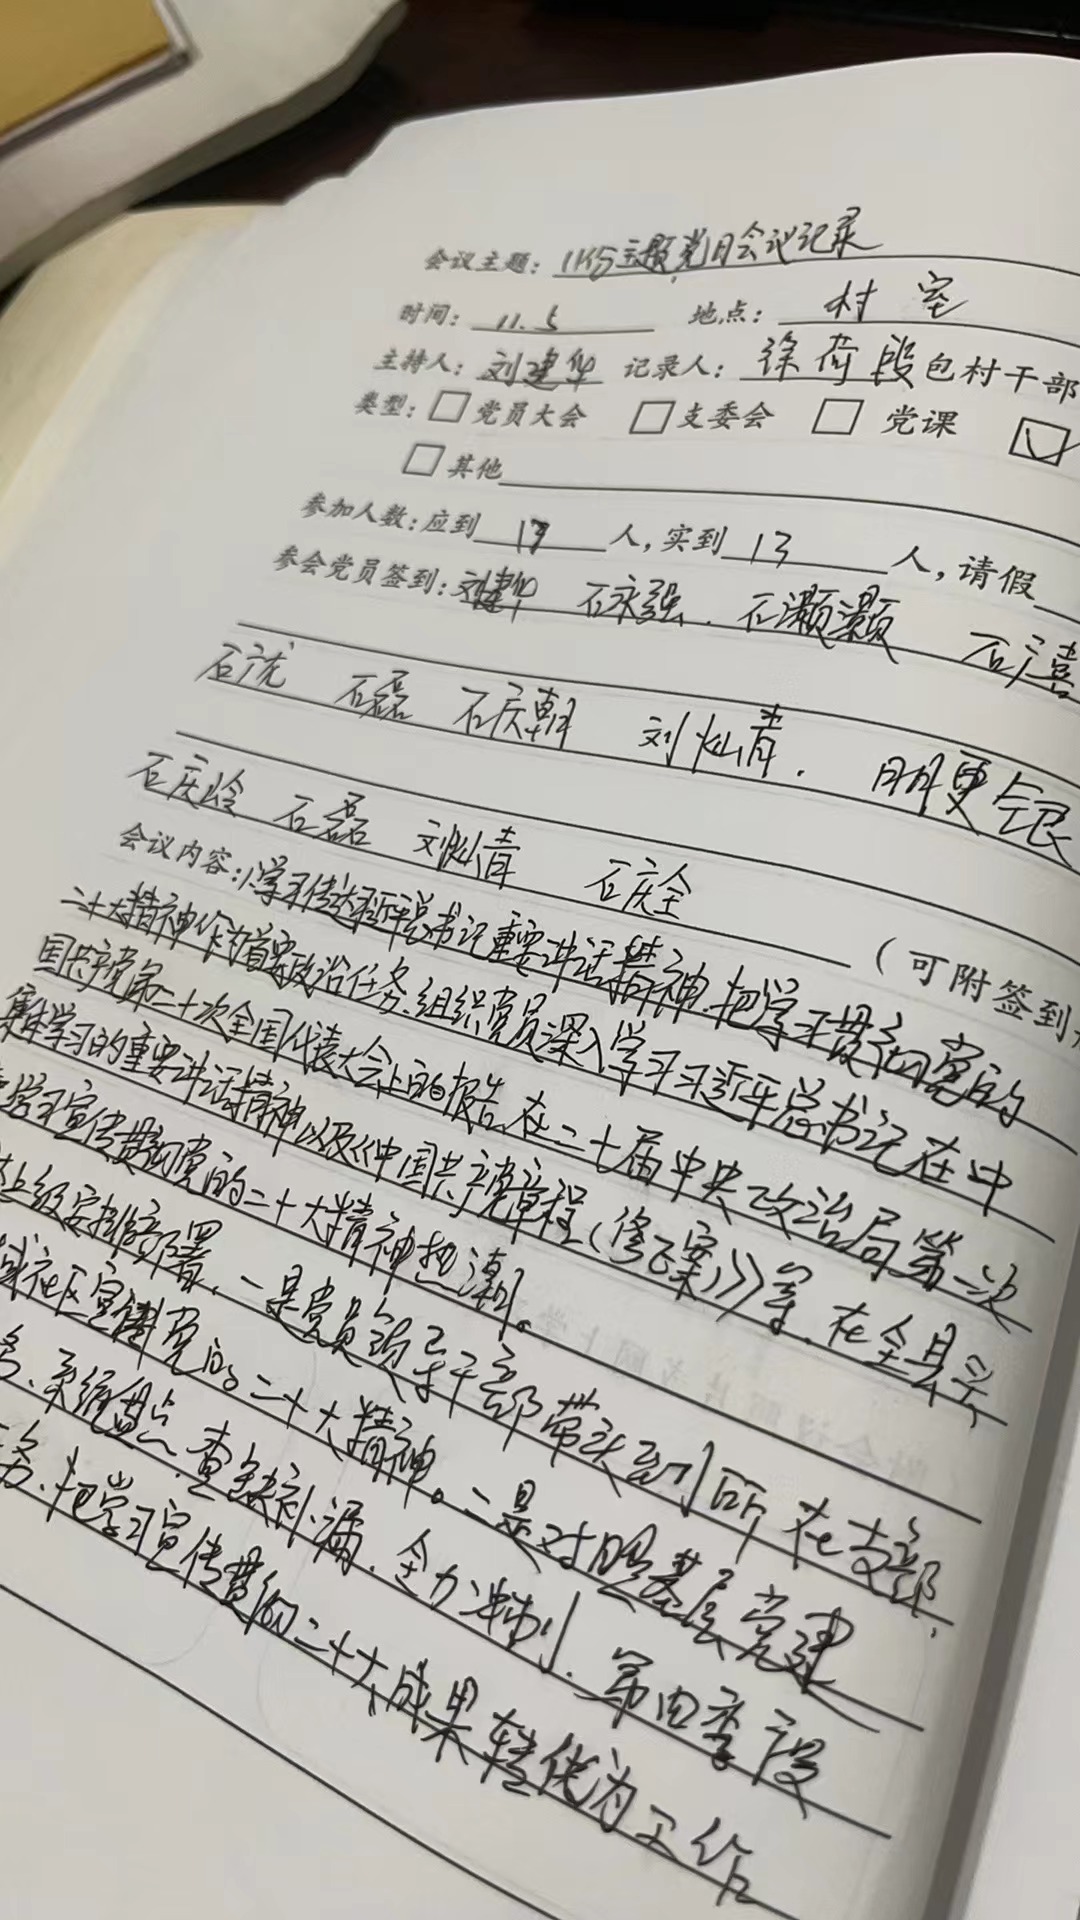 会议主题：11.5主题党日会议记录
时间：11.5 地点：村室
主持人：刘建华 记录人：徐荷段 包村干部
类型：□党员大会 □支委会 □党课 ☑
□其他
参加人数：应到 13 人，实到 13 人，请假
参会党员签到：刘建华 石永强 石灏灏 石
石龙 石磊 石庆朝 刘灿青 银
石庆岭 石磊 刘灿青 石庆全
（可附签到
会议内容：1、学习传达习近平总书记重要讲话精神，把学习贯彻党的
二十大精神作为首要政治任务、组织党员深入学习习近平总书记在中
国共产党第二十次全国代表大会上的报告、在二十届中央政治局第一次
集体学习的重要讲话精神以及《中国共产党章程（修正案）》等，在全县兴
学习宣传贯彻党的二十大精神热潮。
上级安排部署，一是党员领导干部带头到所在支部、
社区宣传党的二十大精神。二是对照基层党建
务、系统盘点、查缺补漏、全力冲刺、第四季度
务、把学习宣传贯彻二十大成果转化为工作